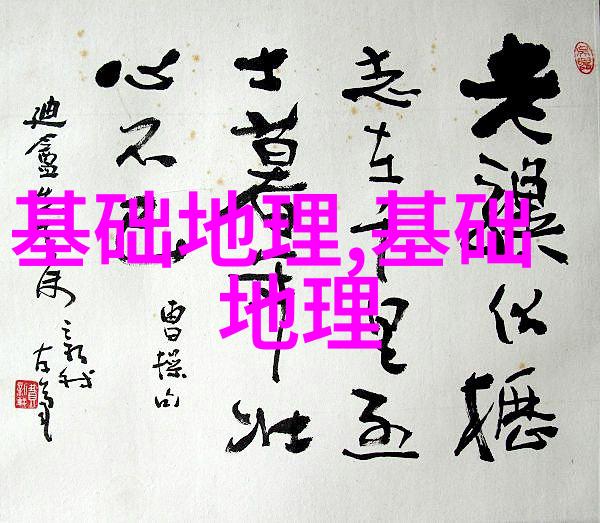 老驥伏櫪
志在千里烈
士暮年壯
心不已
曹操句
迪盦
基础地理,基础
地理